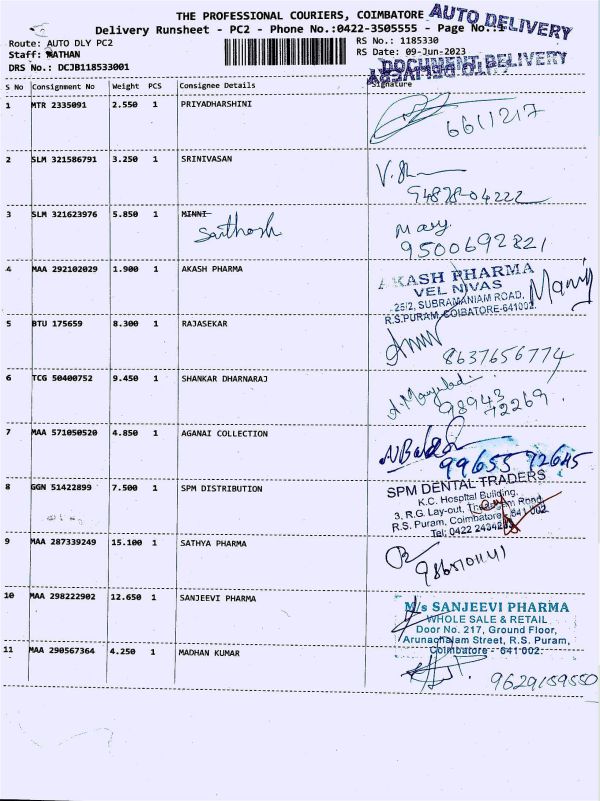 THE PROFESSIONAL COURIERS, COIMBATORE
AUTO DELIVERY
Delivery Runsheet - PC2 - Phone No.:0422-3505555 - Page No.:1
Route: AUTO DLY PC2
RS No.: 1185330
Staff: NATHAN
RS Date: 09-Jun-2023
DRS No.: DCJB118533001
DOCUMENT DELIVERY
S No Consignment No Weight PCS Consignee Details Signature
1 MTR 2335091 2.550 1 PRIYADHARSHINI
6611217
2 SLM 321586791 3.250 1 SRINIVASAN
94878-04222
3 SLM 321623976 5.850 1 MINNI
Santhosh
Mary
9500692821
4 MAA 292102029 1.900 1 AKASH PHARMA
AKASH PHARMA
VEL NIVAS
25/2, SUBRAMANIAM ROAD,
R.S.PURAM, COIBATORE-641002.
Manij
5 BTU 175659 8.300 1 RAJASEKAR
8637656774
6 TCG 50400752 9.450 1 SHANKAR DHARNARAJ
98943
72269.
7 MAA 571050520 4.850 1 AGANAI COLLECTION
99655 72645
8 GGN 51422899 7.500 1 SPM DISTRIBUTION
SPM DENTAL TRADERS
K.C. Hospital Building,
3, R.G. Lay-out, Road,
R.S. Puram, Coimbatore - 641 002
Tel: 0422 243426
9 MAA 287339249 15.100 1 SATHYA PHARMA
10 MAA 298222902 12.650 1 SANJEEVI PHARMA
M/s SANJEEVI PHARMA
WHOLE SALE & RETAIL
Door No. 217, Ground Floor,
Arunachalam Street, R.S. Puram,
Coimbatore - 641 002.
11 MAA 290567364 4.250 1 MADHAN KUMAR
9629159550